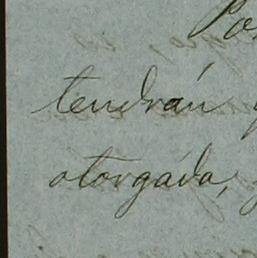 Po
tendrán y
otorgada,